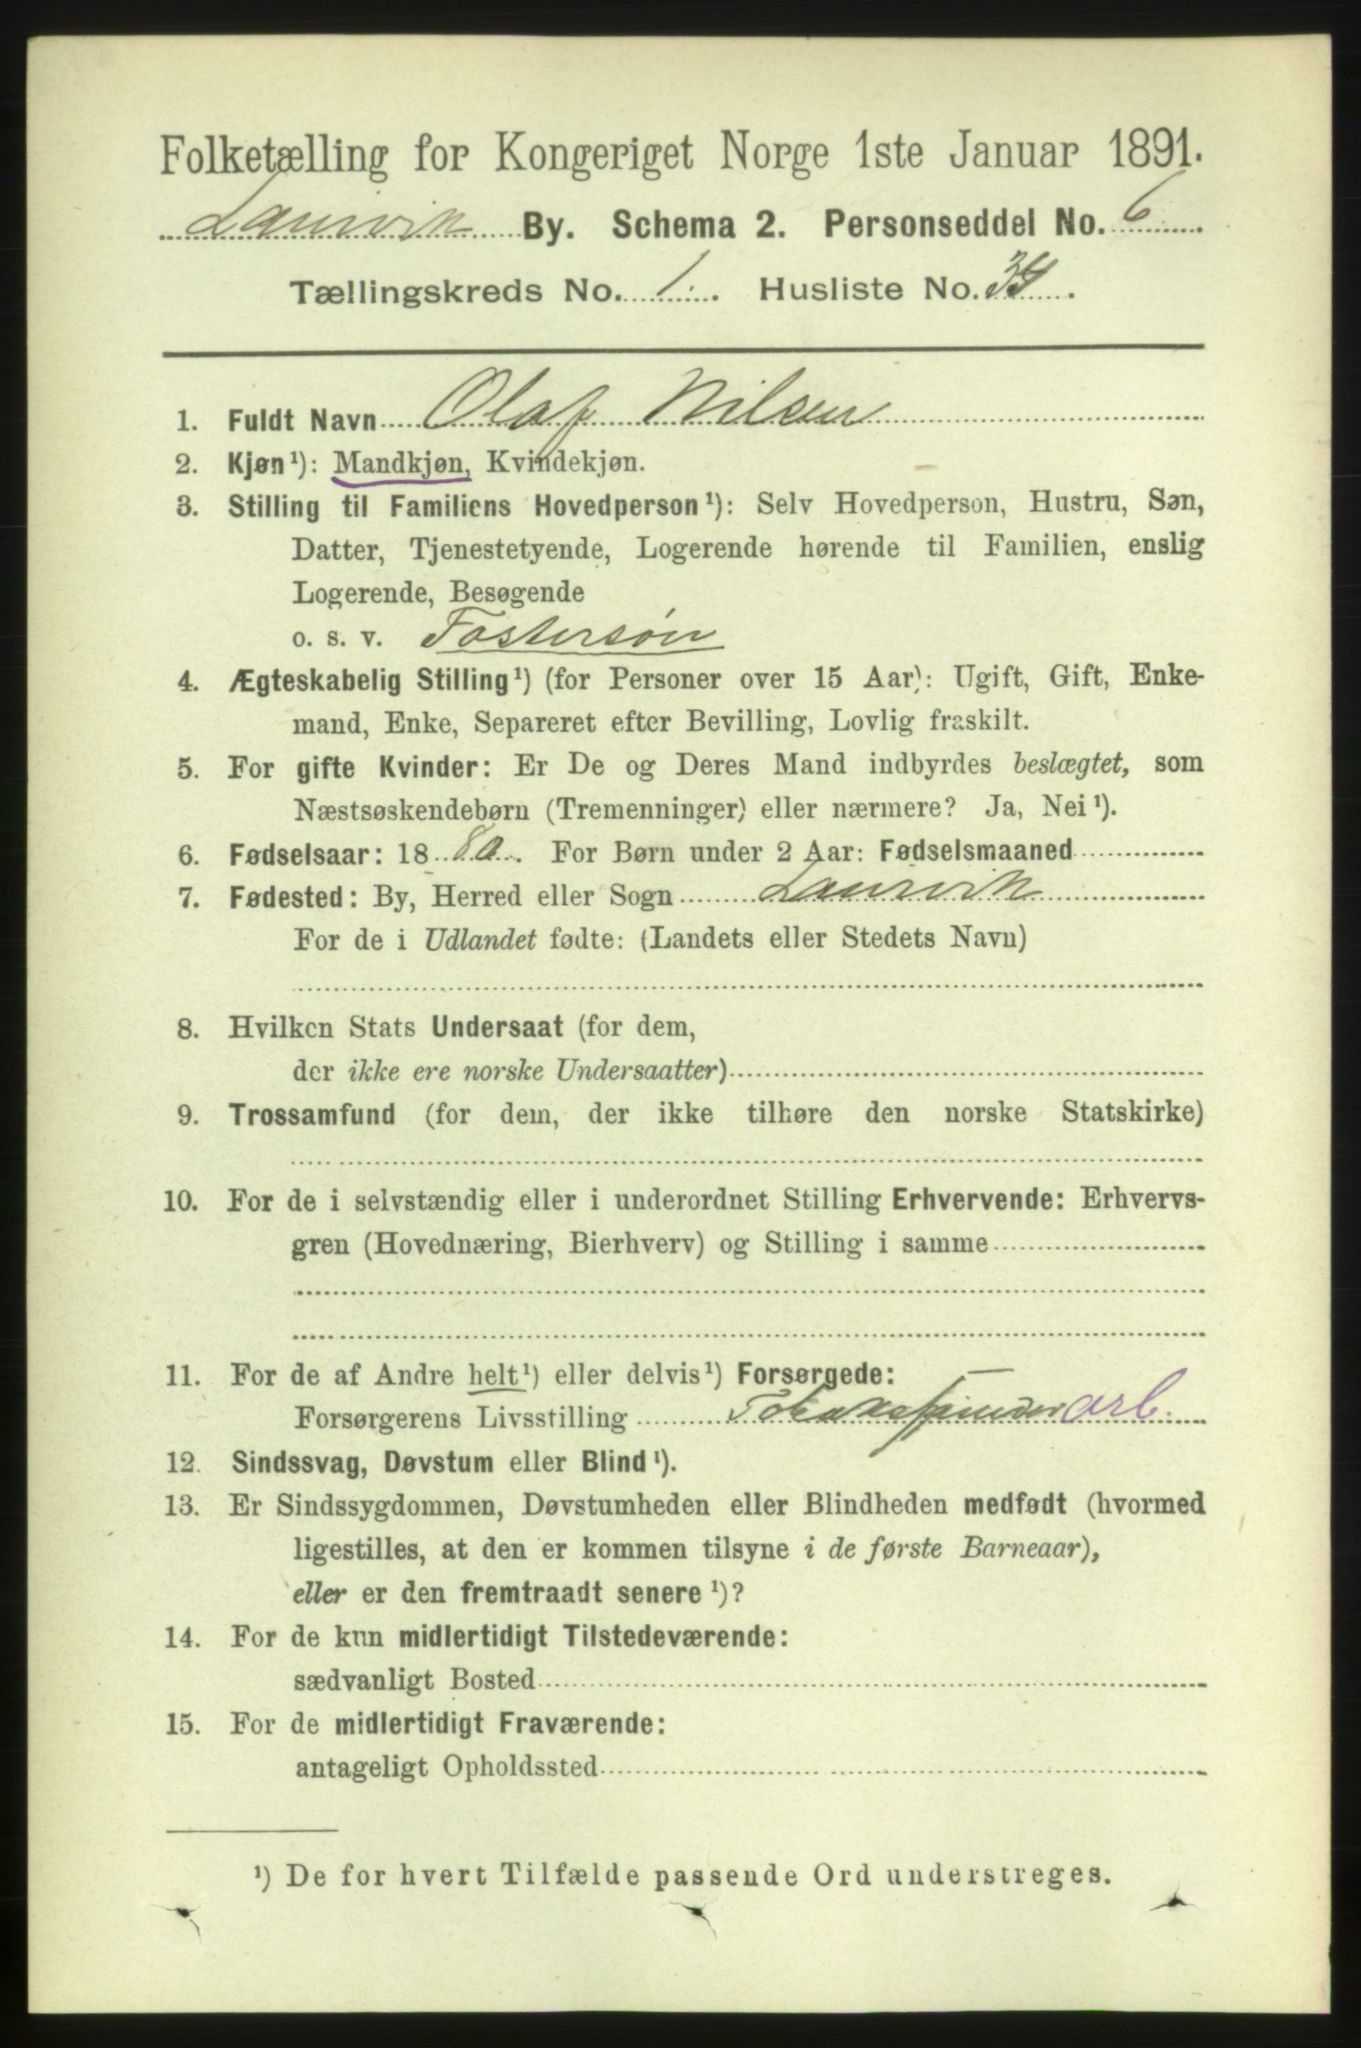 Folketælling for Kongeriget Norge 1ste Januar 1891.
Laurvik By. Schema 2. Personseddel No. 6
Tællingskreds No. 1. Husliste No. 34.
1. Fuldt Navn Olaf Nilsen
2. Kjøn¹): Mandkjøn, Kvindekjøn.
3. Stilling til Familiens Hovedperson¹): Selv Hovedperson, Hustru, Søn,
Datter, Tjenestetyende, Logerende hørende til Familien, enslig
Logerende, Besøgende
o. s. v. Fostersøn
4. Ægteskabelig Stilling¹) (for Personer over 15 Aar): Ugift, Gift, Enke-
mand, Enke, Separeret efter Bevilling, Lovlig fraskilt.
5. For gifte Kvinder: Er De og Deres Mand indbyrdes beslægtet, som
Næstsøskendebørn (Tremenninger) eller nærmere? Ja, Nei¹).
6. Fødselsaar: 1880. For Børn under 2 Aar: Fødselsmaaned
7. Fødested: By, Herred eller Sogn Laurvik
For de i Udlandet fødte: (Landets eller Stedets Navn)
8. Hvilken Stats Undersaat (for dem,
der ikke ere norske Undersaatter)
9. Trossamfund (for dem, der ikke tilhøre den norske Statskirke)
10. For de i selvstændig eller i underordnet Stilling Erhvervende: Erhvervs-
gren (Hovednæring, Bierhverv) og Stilling i samme
11. For de af Andre helt¹) eller delvis¹) Forsørgede:
Forsørgerens Livsstilling Tobaksspinder arb.
12. Sindssvag, Døvstum eller Blind¹).
13. Er Sindssygdommen, Døvstumheden eller Blindheden medfødt (hvormed
ligestilles, at den er kommen tilsyne i de første Barneaar),
eller er den fremtraadt senere¹)?
14. For de kun midlertidigt Tilstedeværende:
sædvanligt Bosted
15. For de midlertidigt Fraværende:
antageligt Opholdssted
¹) De for hvert Tilfælde passende Ord understreges.